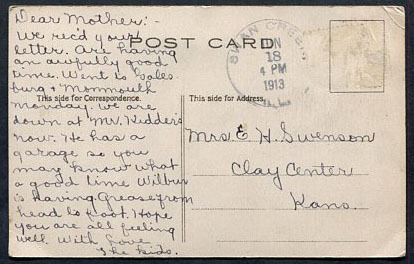 Dear Mother:-
We rec'd your
letter. Are having
an awfully good
time. Went to Gales
burg + Monmouth
Monday. We are
down at Mr. Kidders
now. He has a
garage so you
may know what
a good time Wilbur
is having. Grease from
head to foot. Hope
you are all feeling
well. With Love
The Kids.
POST CARD
This side for Correspondence.
This side for Address.
SWAN CREEK
JUN
18
4 PM
1913
Mrs. E. H. Swenson
Clay Center
Kans.